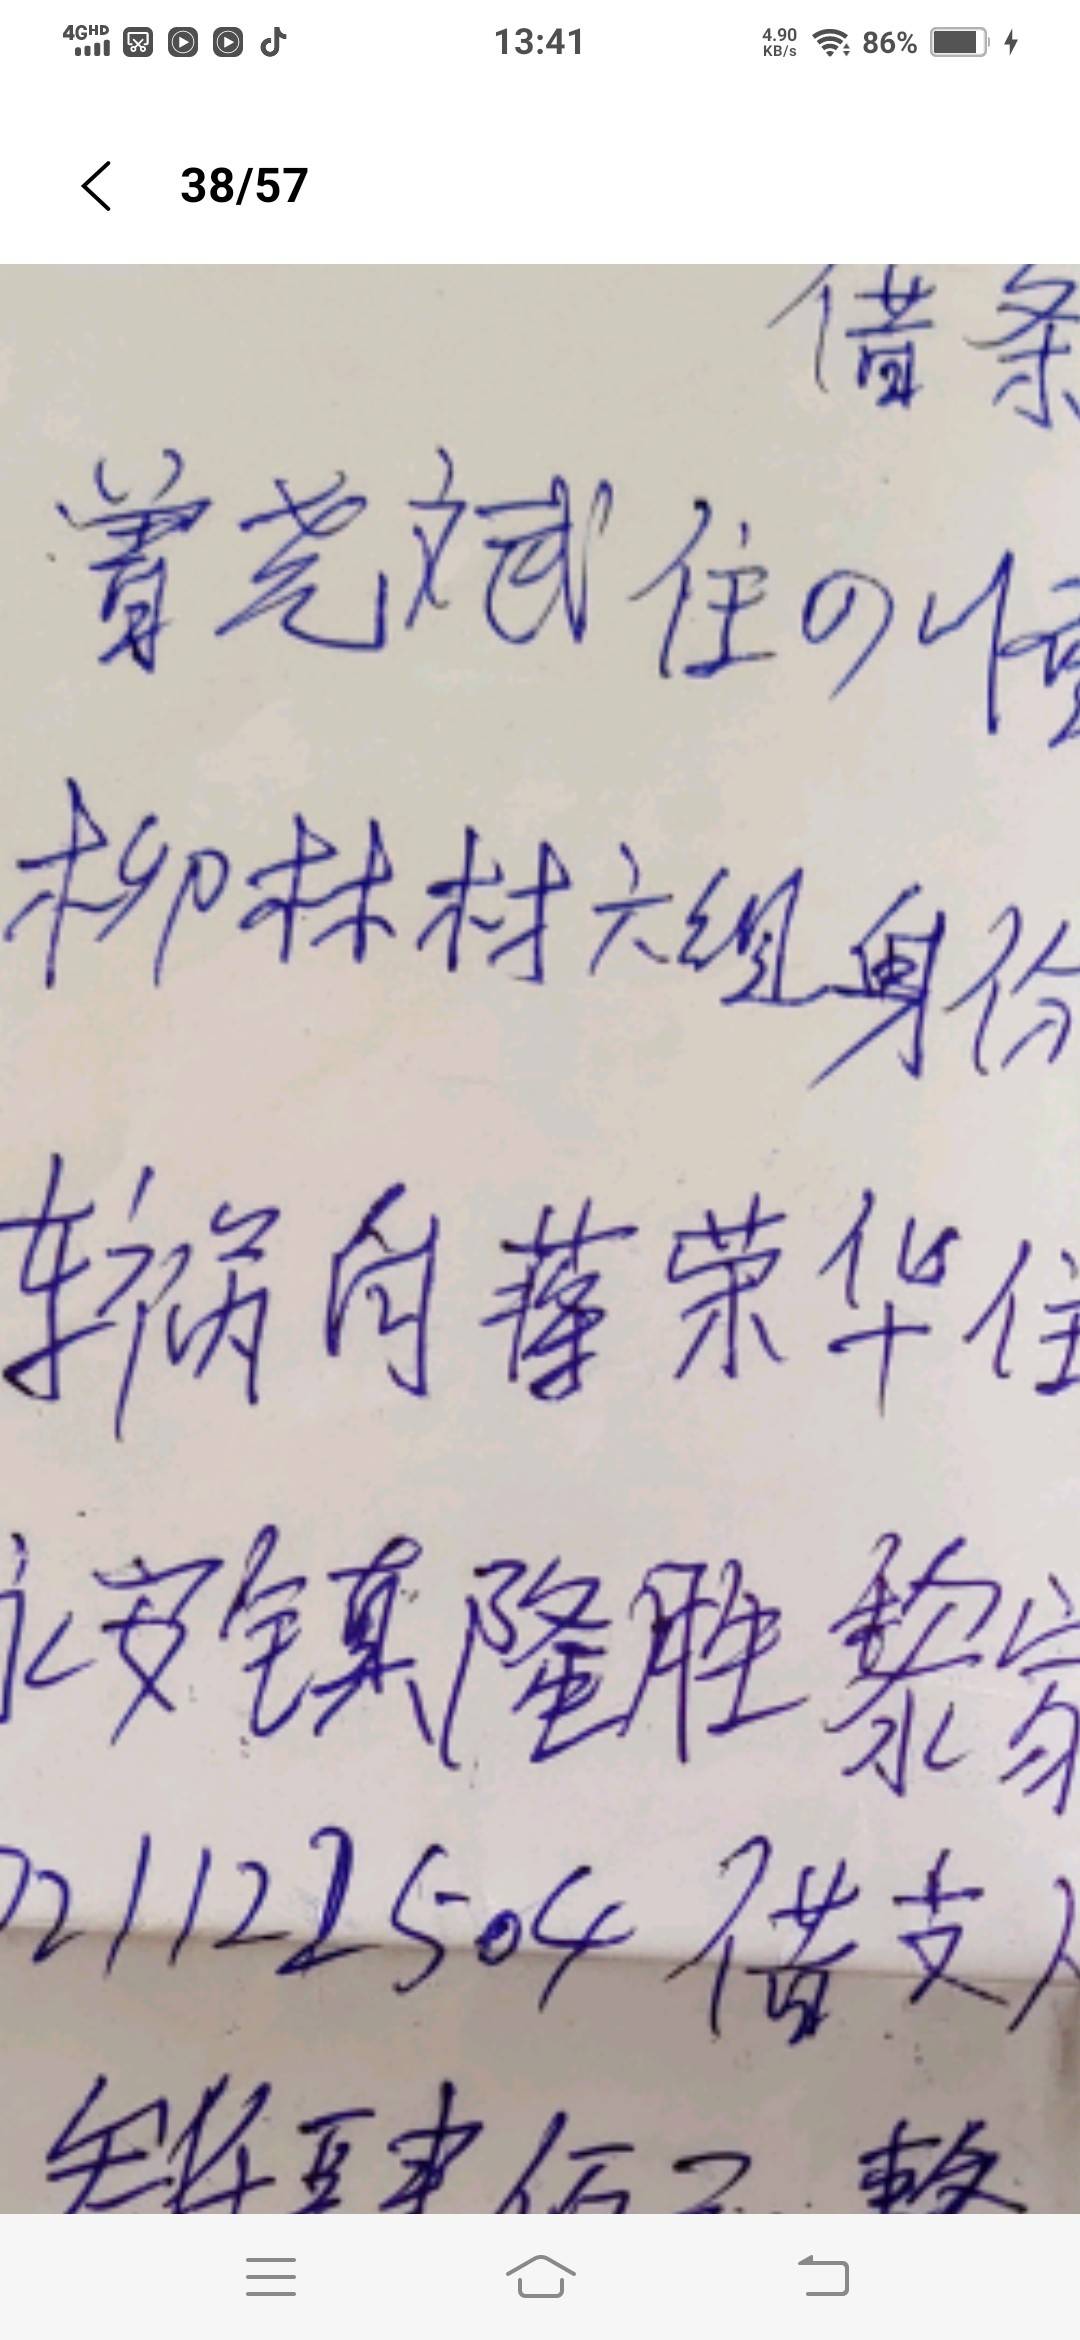 4GHD 13:41 4.90 KB/s 86%
38/57
借条
曾尧斌住四川
柳林村六组身份
车祸向蒋荣华住
永安镇隆胜黎家
221122504借支人
肆佰元整